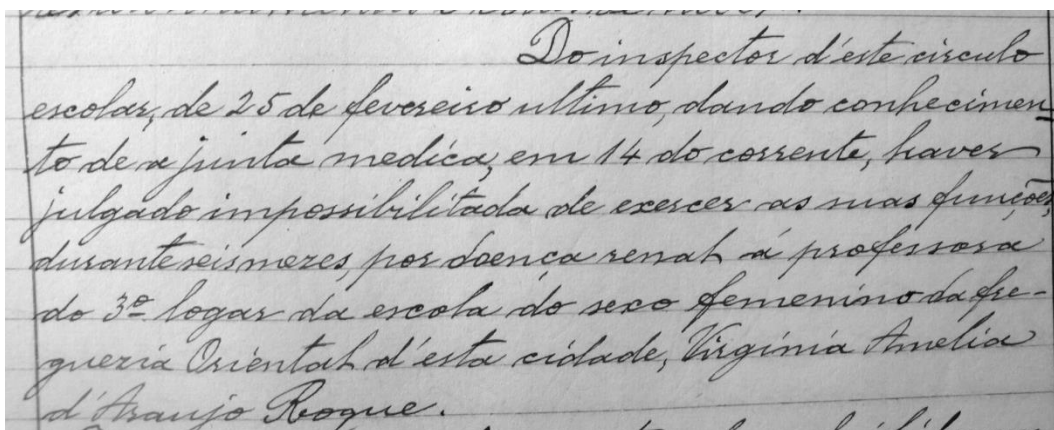 Do inspector d'este circulo
escolar, de 25 de fevereiro ultimo, dando conhecimen-
to de a junta medica, em 14 do corrente, haver
julgado impossibilitada de exercer as suas funções,
durante seis mezes, por doença renal á professora
do 3º logar da escola do sexo femenino da fre-
guezia Oriental d'esta cidade, Virginia Amelia
d'Araujo Roque.